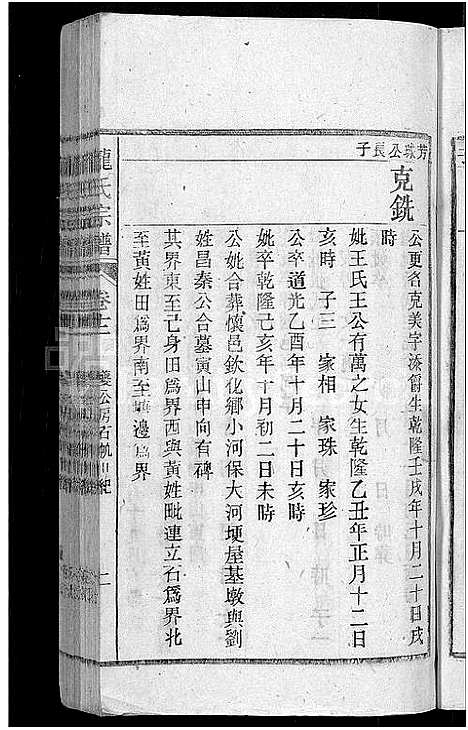 芳琭公長子
克銑
公更名克美字添爵生乾隆壬戌年十月二十日戌
時
妣王氏王公有萬之女生乾隆乙丑年正月十二日
亥時 子三 家相 家珠 家珍
公卒道光乙酉年十月二十日亥時
妣卒乾隆己亥年十月初二日未時
公妣合葬懷邑欽化鄉小河保大河埂屋基墩與劉
姓昌秦公合墓寅山申向有碑
其界東至己身田為界西與黃姓毗連立石為界北
至黃姓田為界南至塘邊為界
龍氏宗譜
卷十二